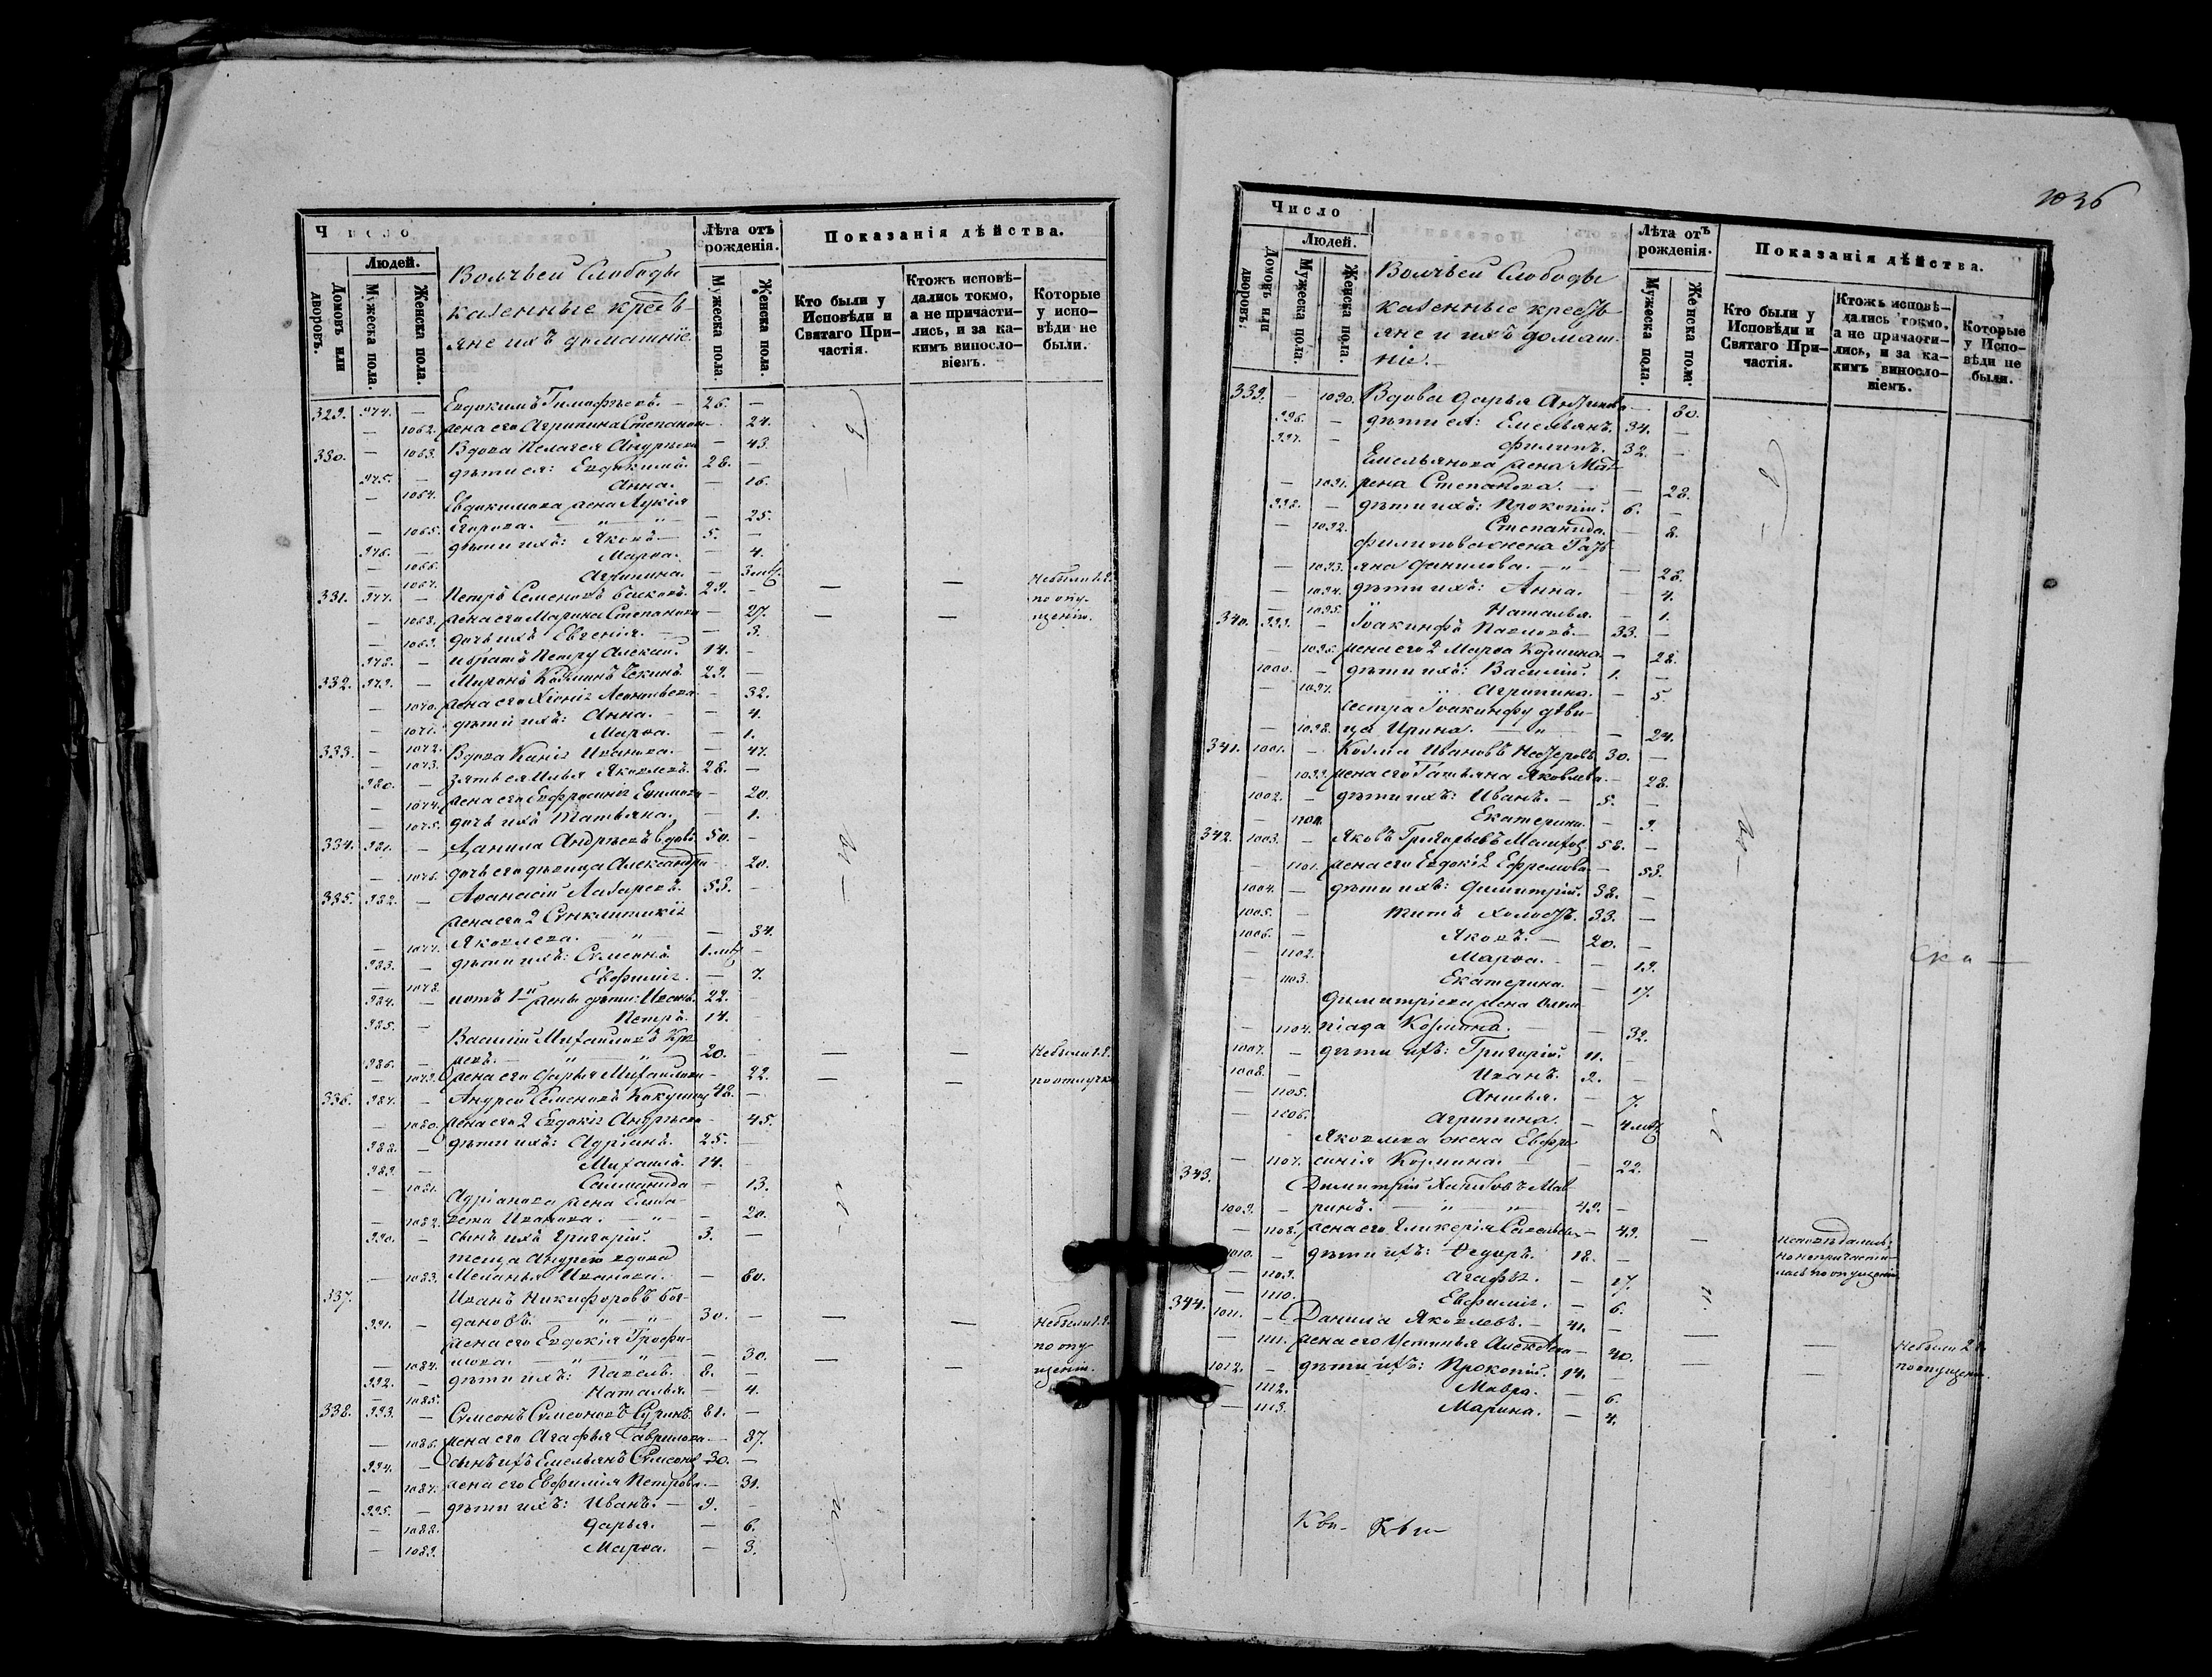 Число
Людей.
Домовъ или дворовъ.
Мужеска пола.
Женска пола.
Волчьей Слободы
казенные кресть-
яне ихъ домашніе
Лѣта отъ рожденія.
Мужеска пола.
Женска пола.
Показанія дѣйства.
Кто были у Исповѣди и Святаго При-частія.
Ктожъ исповѣ-дались токмо, а не причасти-лись, и за ка-кимъ винослo-віемъ.
Которые у испо-вѣди не были.
329. 974. — Евдокимъ Тимофѣевъ. — 26. —
— 1062. жена его Агрипина Степанова — 24.
330. — 1063. Вдова Пелагея Андрѣева — 43.
975. — дѣти ея: Евдокимъ. 28. —
— 1064. Анна. — 16.
Евдокимова жена Лукія
— 1065. Егорова. — 25.
976. — дѣти ихъ: Яковъ — 5. —
— 1066. Марѳа. — 4.
— 1067. Агрипина. — 3 мѣс.
331. 977. — Петръ Семеновъ 29. — — — Небыли
— 1068. жена его Марина Степанова — 27. — — по опу-
щенію.
— 1069. дочь ихъ Евгенія. — 3.
978. — и братъ Петру Алексѣй. 14. —
332. 979. — Миронъ 29. —
— 1070. жена его Хіонія Леонтьева — 32.
— 1071. дѣти ихъ: Анна. — 4.
— 1072. Марѳа. — 1.
333. — 1073. Вдова Ивановa. — 47.
980. — зять ея Илья Яковлевъ. 26. —
— 1074. жена его Евфросинія — 20.
— 1075. дочь ихъ Татьяна. — 1.
334. 981. — Данила Андрѣевъ вдовъ 50. —
— 1076. дочь его дѣвица Александра — 20.
335. 982. — Аѳанасій Лазаревъ. 53. —
жена его 2 Синклитикія
— 1077. Яковлева. — 34.
983. — дѣти ихъ: Симеонъ 1 мѣс —
— 1078. Евфимія. — 7.
984. — и отъ 1й жены дѣти: Иванъ. 22. —
985. — Петръ. 14. —
Василій Михайловъ
986. — 20. — — — Небыли
— 1079. жена его Дарья Михайлова — 22. — — по отлучкѣ
336. 987. — Андрей Семеновъ 48. —
— 1080. жена его 2 Евдокія Андрѣева — 45.
988. — дѣти ихъ: Адріанъ. 25. —
989. — Михаилъ. 14. —
— 1081. Соломонида — 13.
Адріанова жена Елиза-
— 1082. вета Иванова. — 20.
990. — сынъ ихъ Григорій 3. —
теща Андрею вдова
— 1083. Меланья Иванова. — 80.
337. Иванъ Никифоровъ Бог-
991. — дановъ. 30. — — — Небыли
жена его Евдокія Трофи- по опу-
— 1084. мова. — 30. — — щенію.
992. — дѣти ихъ: Павелъ. 8. —
— 1085. Наталья. — 4.
338. 993. — Симеонъ Симеоновъ 81. —
— 1086. жена его Агафья Гаврилова — 87.
994. — сынъ ихъ Емельянъ Симеоновъ 30. —
— 1087. жена его Евфимія Петрова — 31.
995. — дѣти ихъ: Иванъ. — 9. —
— 1088. Дарья. — 6.
— 1089. Марѳа. — 3.
1036
Число
Людей.
Домовъ или дворовъ.
Мужеска пола.
Женска пола.
Волчьей Слободы
казенные кресть-
яне и ихъ домаш-
ніе.
Лѣта отъ рожденія.
Мужеска пола.
Женска пола.
Показанія дѣйства.
Кто были у Исповѣди и Святаго При-частія.
Ктожъ исповѣ-дались токмо, а не причасти-лись, и за ка-кимъ винослo-віемъ.
Которые у Испо-вѣди не были.
339. — 1090. Вдова Дарья Антипова — 80.
996. — дѣти ея: Емельянъ. 34. —
997. — Филипъ. 32. —
Емельянова жена Мат-
— 1091. рена Степанова. — 28.
998. — дѣти ихъ: Прокопій. 6. —
— 1092. Степанида. — 8.
Филипова жена Тать-
— 1093. яна Данилова. — 28.
— 1094. дѣти ихъ: Анна. — 4.
— 1095. Наталья. — 1.
340. 999. — Іоакинфъ Павловъ. 33. —
— 1096. жена его 2 Марѳа Козмина — 28.
1000. — дѣти ихъ: Василій. 1. —
— 1097. Агрипина. — 5.
сестра Іоакинфу дѣви-
— 1098. ца Ирина. — 24.
341. 1001. — Козма Ивановъ Нестеровъ 30. —
— 1099. жена его Татьяна Яковлева. — 28.
1002. — дѣти ихъ: Иванъ. — 5. —
— 1100. Екатерина. — 9.
342. 1003. — Яковъ Григорьевъ 58. —
— 1101. жена его Евдокія Ефремова — 53.
1004. — дѣти ихъ: Димитрій. 38. —
1005. — Титъ холостъ. 33. —
1006. — Яковъ. — 20. —
— 1102. Марѳа. — 19.
— 1103. Екатерина. — 17.
Димитріева жена Олим-
— 1104. піада Козмина. — 32.
1007. — дѣти ихъ: Григорій. 11. —
1008. — Иванъ. 2. —
— 1105. Анисья. — 7.
— 1106. Агрипина. — 4 мѣс
Яковлева жена Евфро-
— 1107. синія Козмина. — 22.
343. Димитрій
1009. — 49. —
— 1108. жена его Гликерія Савельева — 49. — исповѣдались,
но непричасти-
лась по опущенію
1010. — дѣти ихъ: Ѳедоръ. 18. —
— 1109. Агафья. — 17.
— 1110. Евфимія. — 6.
344. 1011. — Данила Яковлевъ. — 41. —
— 1111. жена его Устинья — 40. — — Небыли
1012. — дѣти ихъ: Прокопій. 14. — — — по опущенію.
— 1112. Мавра. — 6.
— 1113. Марина. — 4.